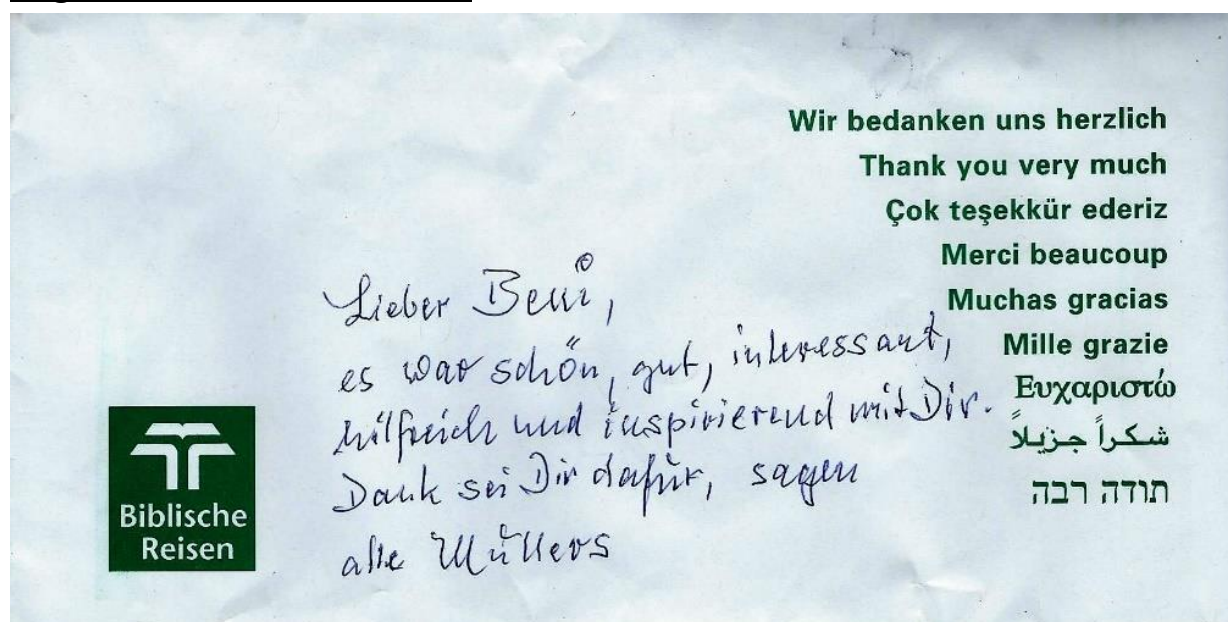 Wir bedanken uns herzlich
Thank you very much
Çok teşekkür ederiz
Merci beaucoup
Muchas gracias
Mille grazie
Ευχαριστώ
شكراً جزيلاً
תודה רבה
Lieber Beni,
es war schön, gut, interessant,
hilfreich und inspirierend mit Dir.
Dank sei Dir dafür, sagen
alle Müllers
Biblische
Reisen